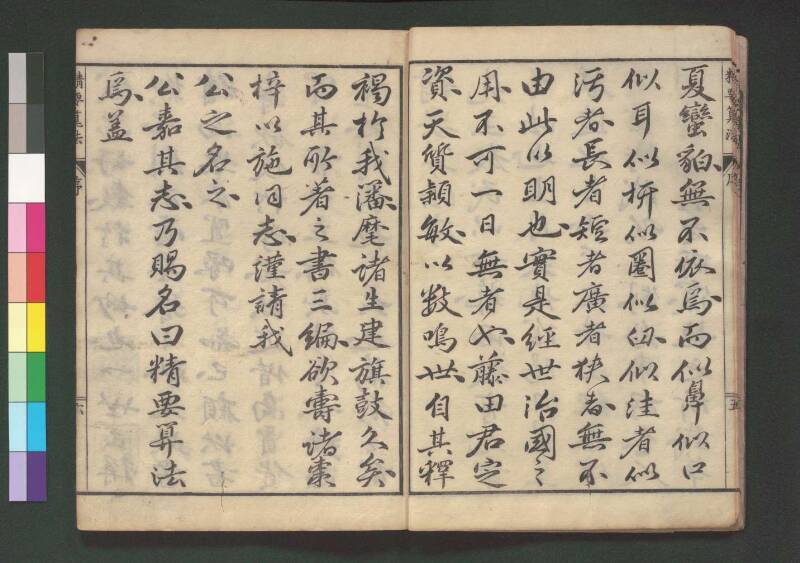 夏蠻貊無不依焉而似鼻似口
似耳似枅似圏似臼似洼者似
汚者長者短者廣者狹者無不
由此以明也實是經世治國之
用不可一日無者也藤田君定
資天質穎敏以数鳴世自其釋
褐於我藩麾諸生建旗鼓久矣
而其所著之書三編欲壽諸棗
梓以施同志謹請我
公之名之
公嘉其志乃賜名曰精要算法
焉蓋
精要算法
序
五
精要算法
序
六